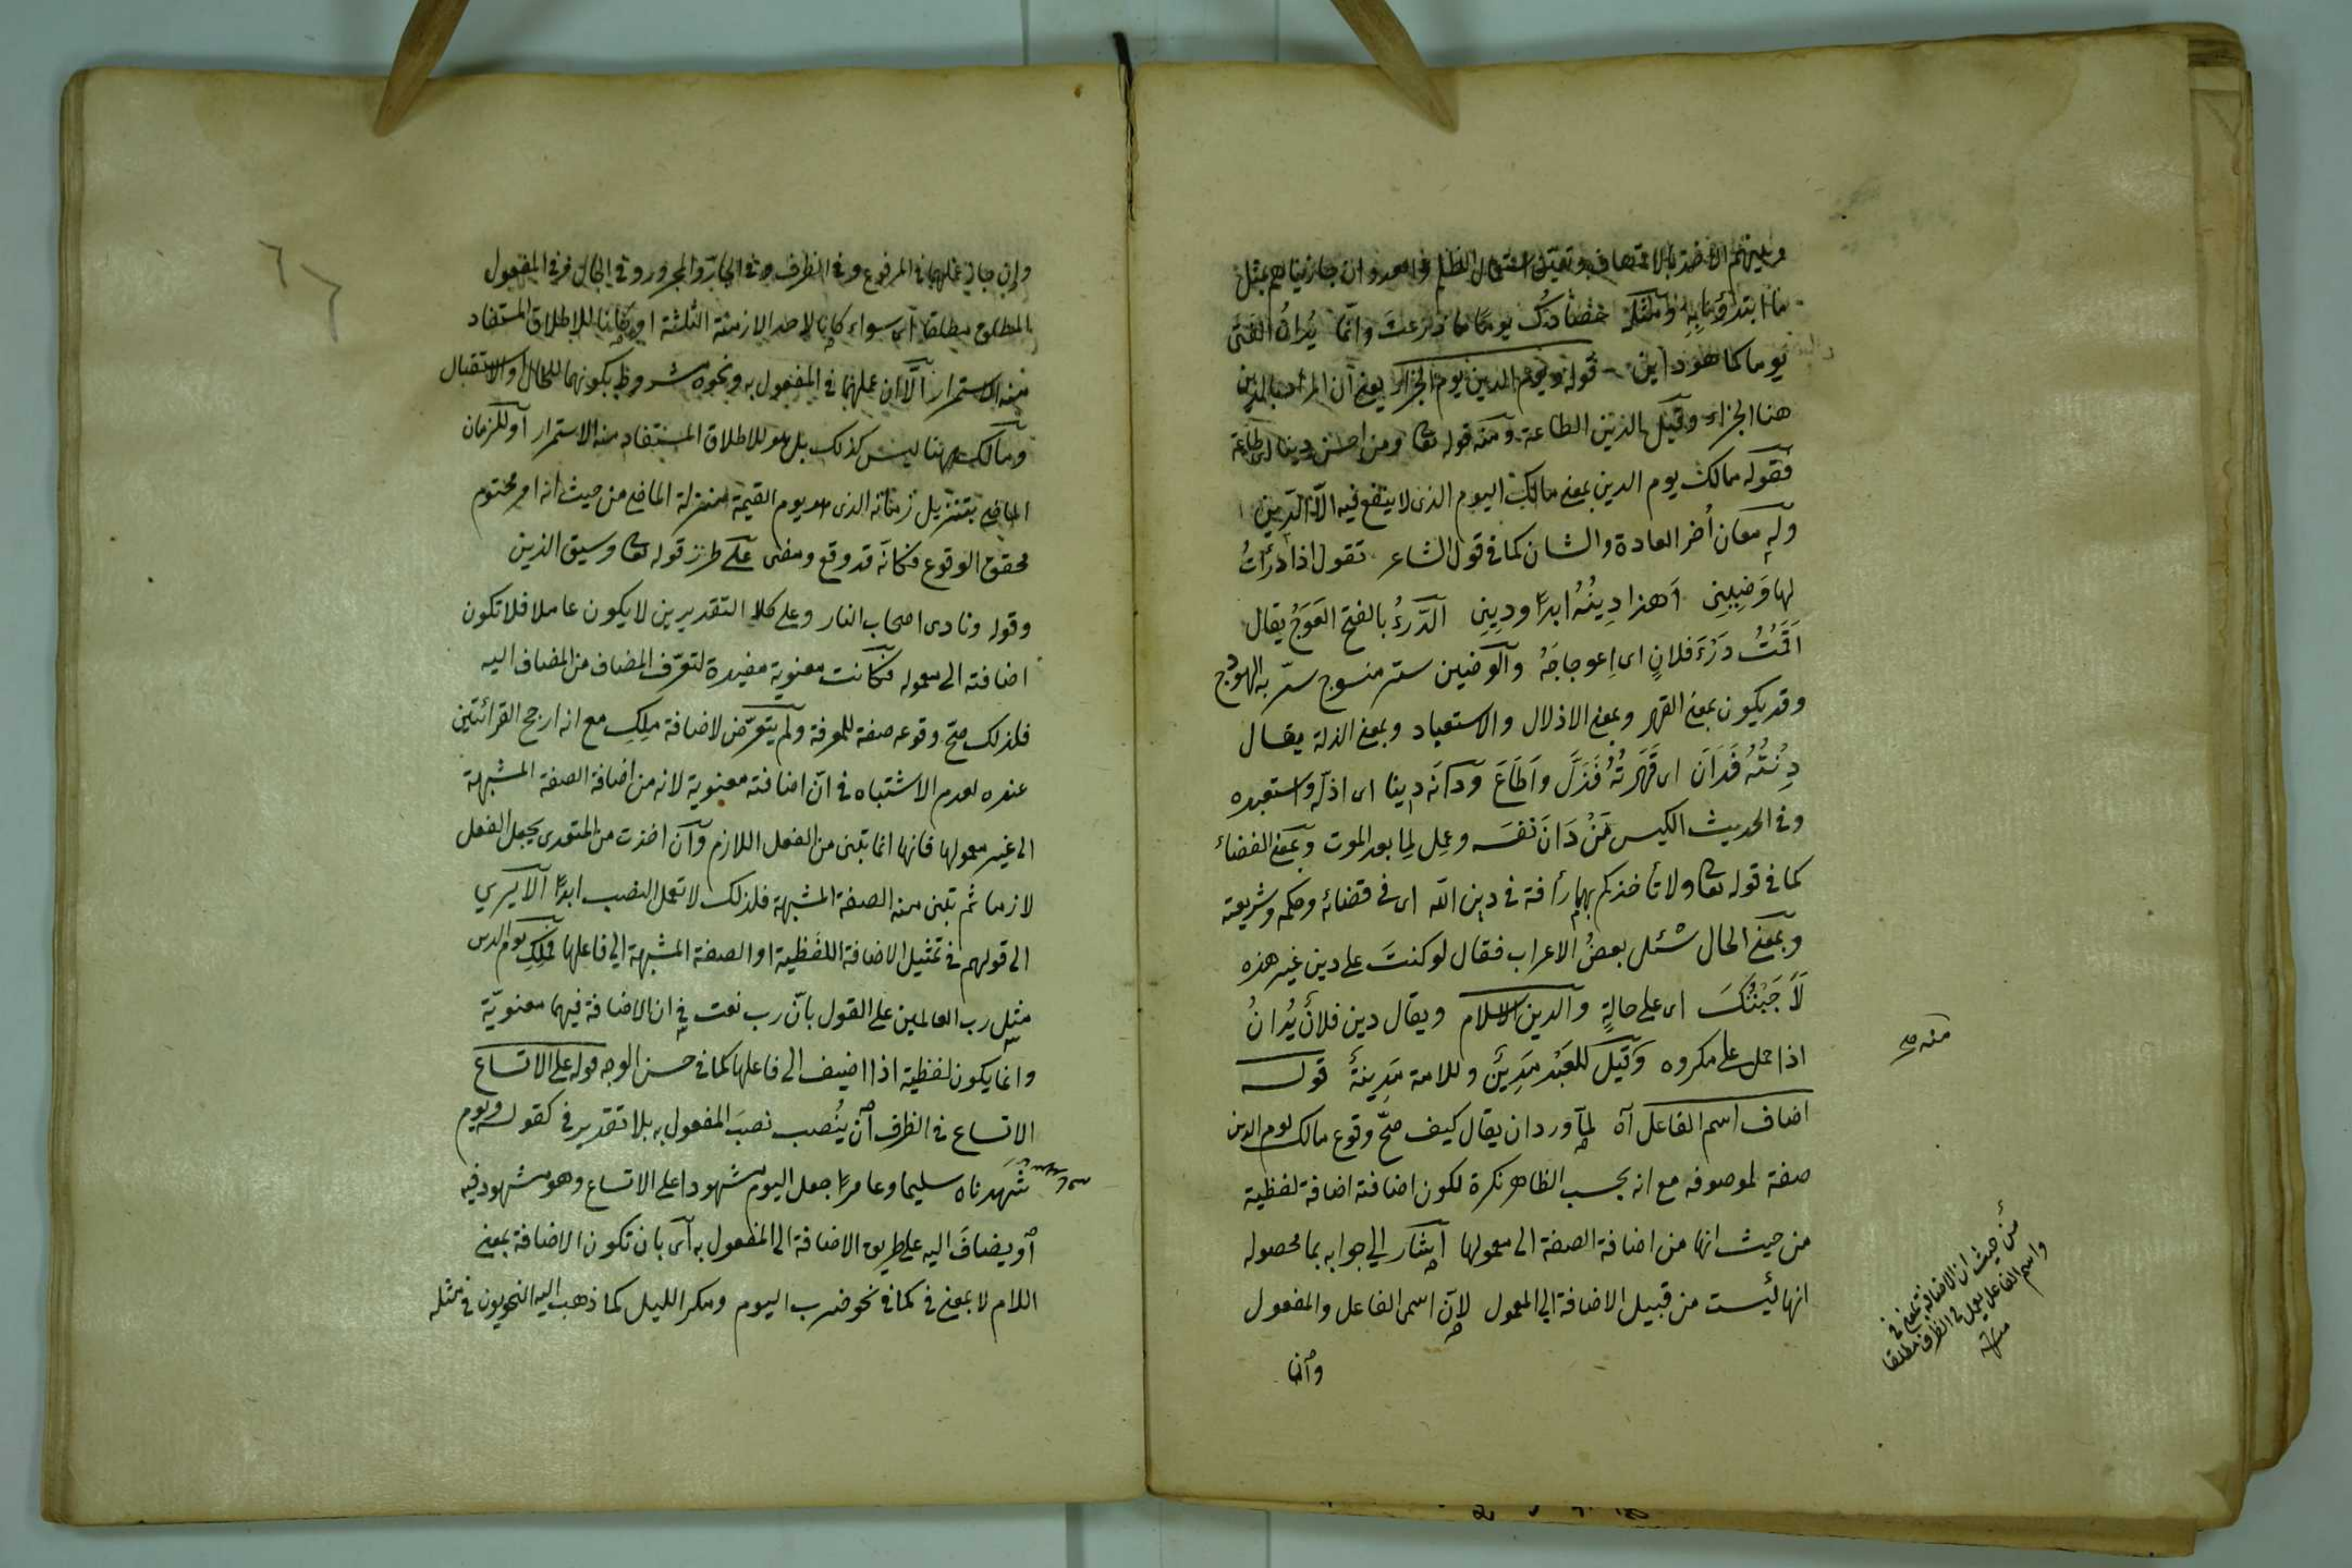 ما ابتدؤنا به ومثله حصادك يوما ما زرعت وانما يُدانُ الفتى
يوما كما هو دائن قوله ويوم الدين يوم الجزاء يعنى ان المراد بالدين
هنا الجزاء وقيل الدين الطاعة ومنه قوله تعا ومن احسن دينا اى طاعة
فقوله مالك يوم الدين بمعنى مالك اليوم الذى لا ينفع فيه الا الدين
وله معان أخر العادة والشان كما فى قول الشاعر تقول اذا درَأتُ
لها وَضِينِى أهذا دِينُهُ ابدًا ودِينِى الدَّرءُ بالفتح العَوَجُ يقال
اَقَمْتُ دَرْءَ فلانٍ اى اِعوجاجَهُ والوضين ستر منسوج ستر به الهودج
وقد يكون بمعنى القهر وبمعنى الاذلال والاستعباد وبمعنى الذلة يقال
دِنْتُهُ فَدَانَ اى قَهَرتُهُ فَذَلَّ واَطَاعَ ودَانَه دِينا اى اذلّه واستعبده
وفى الحديث الكيس مَنْ دَانَ نَفسَه وعمِل لِما بعد الموت وبمعنى القضاء
كما فى قوله تعا ولا تأخذكم بهما رأفة فى دين الله اى فى قضائه وحكمه وشريعته
وبمعنى الحال سُئل بعضُ الاعراب فقال لو كنتَ على دين غير هذه
لَأَجَبْتُكَ اى على حالةٍ والدين الاسلام ويقال دين فلانٌ يُدانُ
اذا حمل على مكروه وقيل للعَبْد مَدِينٌ وللامة مَدِينةٌ قوله
اضاف اسم الفاعل آه لما ورد ان يقال كيف صحّ وقوع مالك يوم الدين
صفة لموصوفه مع انه بحسب الظاهر نكرة لكون اضافته اضافة لفظية
من حيث انها من اضافة الصفة الى معمولها اشار الى جوابه بما محصوله
انها ليست من قبيل الاضافة الى المعمول لان اسمى الفاعل والمفعول
وان
منه
من حيث ان الاضافة بمعنى فى
واسم الفاعل يعمل فى الظرف مطلقا
منه
وان جاز عملهما فى المرفوع وفى الظرف وفى الجارّ والمجرور وفى الحال وفى المفعول
المطلق مطلقا اى سواء كانا لاحد الازمنة الثلثة او كانا للاطلاق المستفاد
منه الاستمرار الّا ان عملهما فى المفعول به ونحوه مشروط بكونهما للحال او الاستقبال
ومالك ههنا ليس كذلك بل هو للاطلاق المستفاد منه الاستمرار او للزمان
الماضى بتنزيل زمانه الذى هو يوم القيمة منزلة الماضى من حيث انه امر محتوم
محقق الوقوع فكانّه قد وقع ومضى على طرز قوله تعا وسيق الذين
وقوله ونادى اصحاب النار وعلى كلا التقديرين لا يكون عاملا فلا تكون
اضافته الى معموله فكانت معنوية مفيدة لتعرّف المضاف من المضاف اليه
فلذلك صحّ وقوعه صفة للمعرفة ولم يتعرّض لاضافة مِلِكِ مع انه ارجح القرائتين
عنده لعدم الاشتباه فى انّ اضافته معنوية لانه من اضافة الصفة المشبهة
الى غير معمولها فانها انما تبنى من الفعل اللازم وان اخذت من المتعدى يجعل الفعل
لازما ثم تبنى منه الصفة المشبهة فلذلك لا تعمل النصب ابدًا الا يرى
الى قولهم فى تمثيل الاضافة اللفظية او الصفة المشبهة الى فاعلها فملك يوم الدين
مثل رب العالمين على القول بانّ رب نعت فى ان الاضافة فيهما معنويّة
وانما يكون لفظية اذا اضيف الى فاعلها كما فى حسن الوجه قوله على الاتساع
الاتساع فى الظرف ان يُنصب نصبَ المفعول به بلا تقدير فى كقوله ويوم
شهدناه سليما وعامرًا جعل اليوم مشهودا على الاتساع وهو مشهود فيه
او يضافَ اليه على طريق الاضافة الى المفعول به اى بان تكون الاضافة بمعنى
اللام لا بمعنى فى كما فى نحو ضرب اليوم ومكر الليل كما ذهب اليه النحويون فى مثله